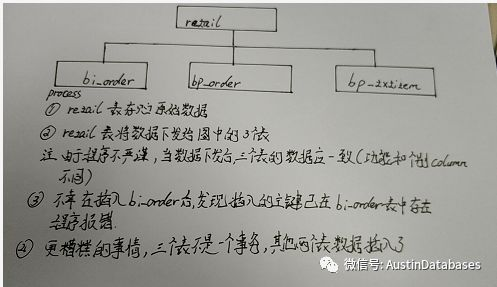 retail
bi_order
bp_order
bp_txtitem
process
① retail 表存的原始数据
② retail 表将数据下发给图中的3个表
注 由于程序不严谨，当数据下发后，三个表的数据应一致（功能和个别column
不同）
③ 不幸在插入bi-order后，发现插入的主键已在bi-order表中存在
程序报错.
④ 更糟糕的事情，三个表不是一个事务，其他两个表数据插入了
微信号: AustinDatabases